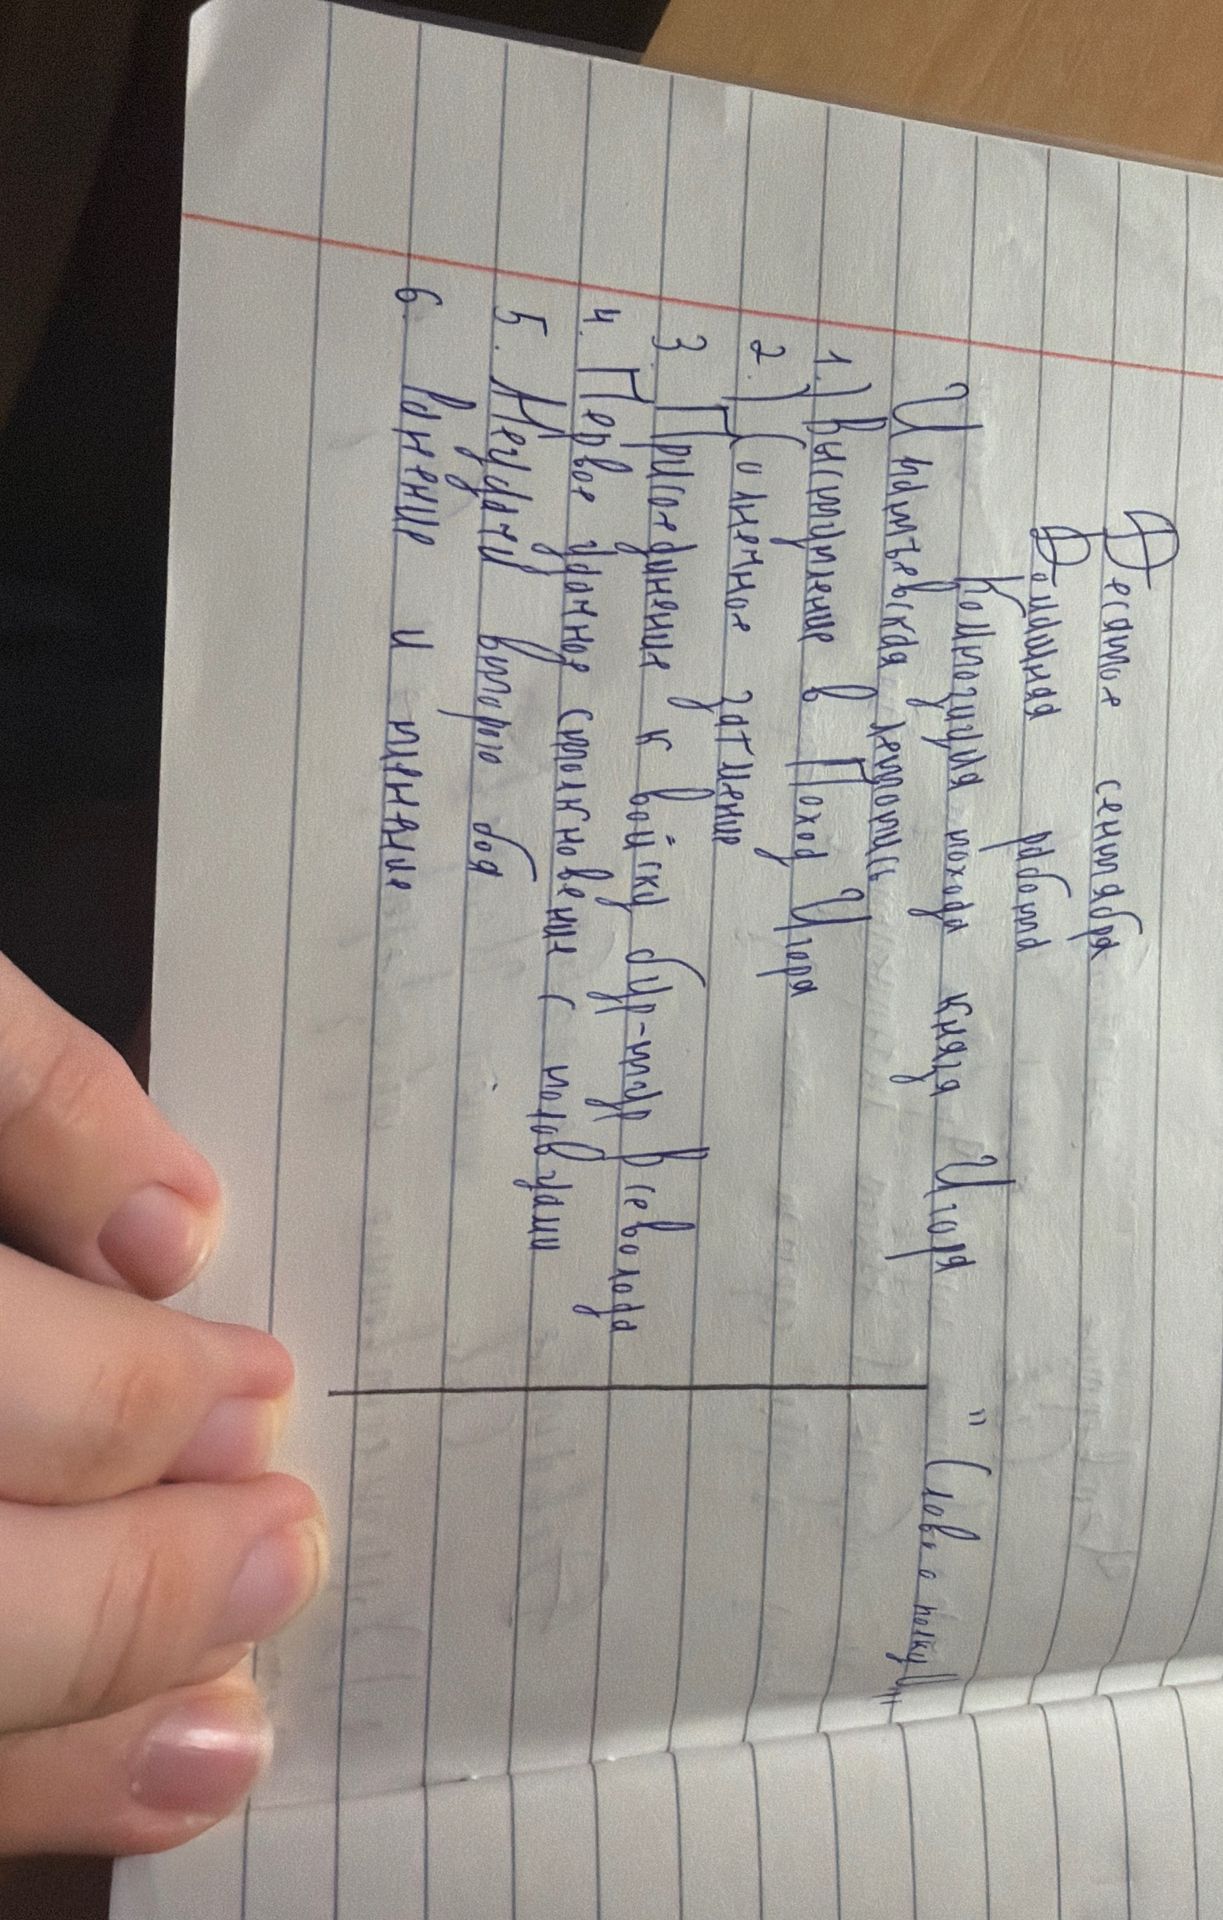 Десятое сентября
Домашняя работа
Композиция похода князя Игоря "Слово о полку И"
Ипатьевская летопись
1.) Выступление в Поход Игоря
2.) Солнечное затмение
3 Присоединение к войску бур-тур Всеволода
4. Первое удачное столкновение с половцами
5. Неудачи второго боя
6. Ранение и пленение